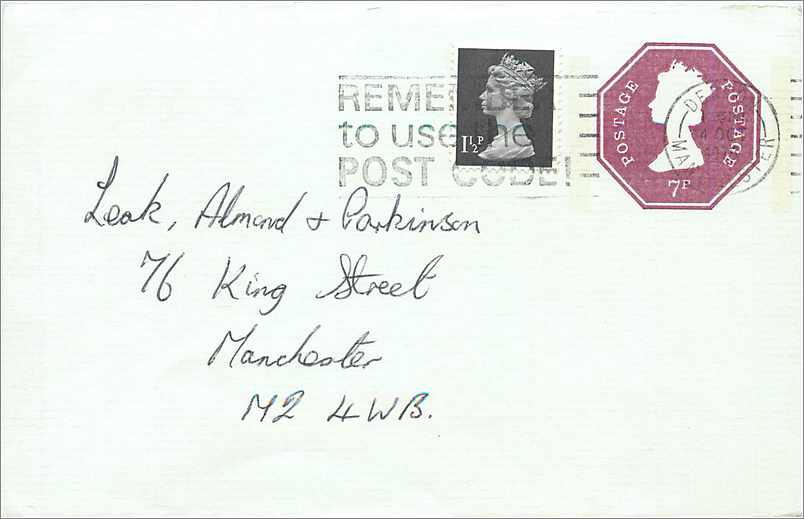 REMEMBER
to use the
POST CODE!
1½P
POSTAGE POSTAGE
7P
MANCHESTER
Leak, Almond & Parkinson
76 King Street
Manchester
M2 4WB.